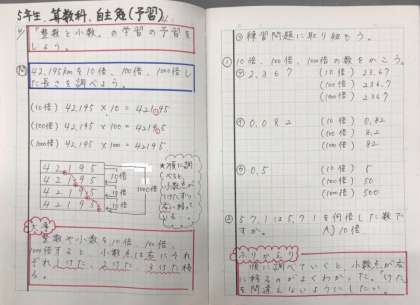 5年生、算数科、自主勉(予習)
「整数と小数」の学習の予習を
しよう。
42.195kmを10倍、100倍、1000倍し
た長さを調べよう。
(10倍) 42.195 × 10 = 421.95
(100倍) 42.195 × 100 = 4219.5
42.195
421.95
4219.5
42195
10倍
10倍
10倍
1000倍
整数や小数を10倍、100倍、
1000倍すると、小数点は右にそれ
ぞれ1けた、2けた、3けた移
る。
練習問題に取り組もう。
10倍、100倍、1000倍の数をかこう。
2.367 (10倍) 23.67
(100倍) 236.7
(1000倍) 2367
0.082 (10倍) 0.82
(100倍) 8.2
(1000倍) 82
0.5 (10倍) 5
(100倍) 50
(1000倍) 500
57.1は5.71を何倍した数で
すか。 A) 10倍
ふりかえり
順に調べていくと、小数点が右
に移るのがよくわかった。「けた」
を間違えないようにしたい。